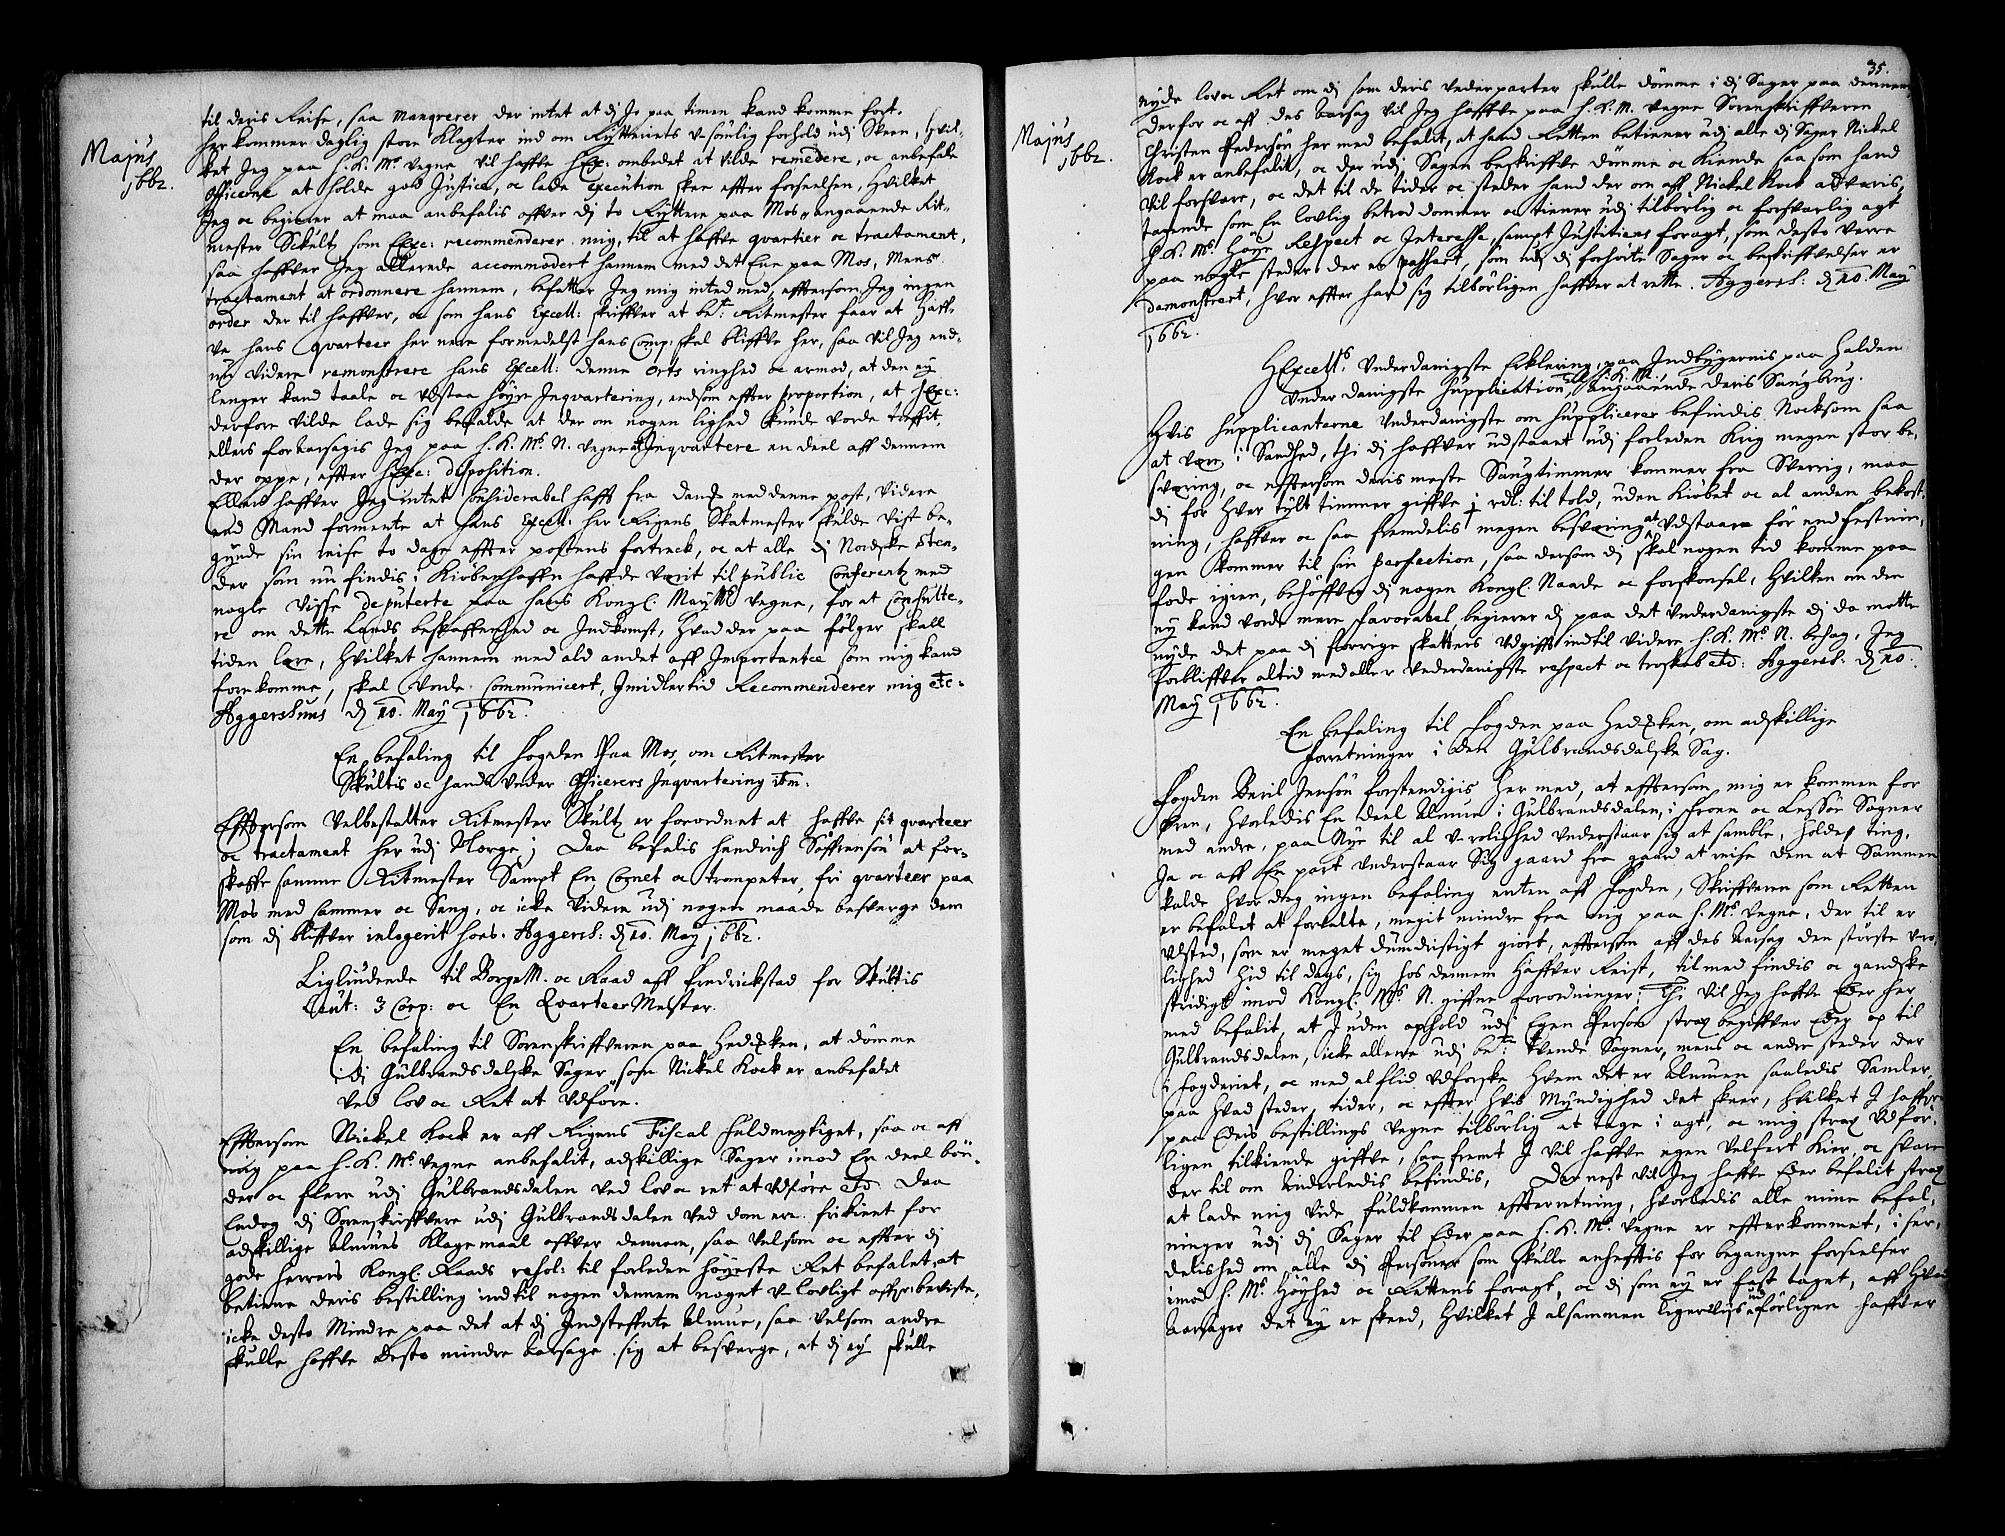 Majus
1662.
til deris Reise, saa manqverer der intet at di Jo paa timen kand komme fort.
her kommer daglig store Klagter ind om Rytteriets u-sönlig forhold udj Skeen, Hvil-
ket Jeg paa H. K. Ms. Vegne vil haffve HExc: ombedet at vilde remedere, oc anbefale
officerne at holde god Justice, oc lade Execution skee effter forseelsen, Hvilket
Jeg oc begierer at maa anbefalis offver di to Ryttere paa Mos, angaaende Rit-
mester Schultz som Exc: recommenderer mig, til at haffve qvartier oc tractament,
saa haffver Jeg allerede accommodert hannem med det Ene paa Mos, Mens
tractament at ordonnere hannem, befatter Jeg mig inted med, efftersom Jeg ingen
order der til haffver, oc som hans Excell: skriffver at be:te Ritmester faar at Haff-
ve hans qvarteer her nere formedelst hans Comp: skal bliffve her, saa vil Jeg end-
nu videre remonstrere hans Excell: denne Orts ringhed oc armod, at den ey
lenger kand taale oc Udstaa höyre Inqvartering, endsom effter proportion, at HExc:
derfore vilde lade sig befalde at der om nogen lighed kunde vorde treffit,
ellers foraarsagis Jeg paa H. K. Ms. N. Vegne at Inqvartere en deel aff dennem
der oppe, effter HExc: disposition.
Ellers haffver Jeg intet Considerabel hafft fra Danm. med denne post, Videre
end Mand formente at hans Excell: her Rigens Skatmester skulde vist be-
gynde sin reise to dage effter postens fortreck, oc at alle di Nordske Sten-
der som nu findis i Kiöbenhaffn haffde verit til public Conferentz med
nogle visse deputerte paa hans Kongl: Maytts Vegne, for at Consulte-
re om dette Lands beskaffenhed oc Indkomst, Hvad der paa fölger skall
tiden lære, Hvilket hannem med ald andet aff Importantce som mig kand
forekomme, skal vorde Communicert, Imidlertid Recommenderer mig etc.
Aggershuus d. 10. May 1662.
En befaling til Fogden Paa Mos, om Ritmester
Skultis oc hands Under Officerers Inqvartering ibm:
Efftersom Velbestalter Ritmester Skultz er forordnet at haffve sit qvarteer
oc tractament her udj Norge; Daa befalis Hendrich Söffrensön at for-
skaffe samme Ritmester Sampt En Cornet oc trompeter, fri qvarteer paa
Mos med Cammer oc Seng, oc icke Videre udj nogen maade besverge dem
som di bliffver inlogerit hoes. Aggersh: d. 10. May 1662.
Ligliudende til BorgeM. oc Raad aff Fredrickstad for Skultis
Leut: 3 Corp: oc En QvarteerMester.
En befaling til Sorenskriffveren paa Hedemken, at dömme
i di Gulbrandsdalske Sager som Nickel Kock er anbefalet
ved lov oc Ret at Udföre.
Efftersom Nickel Kock er aff Rigens Fiscal fuldmegtiget, saa oc aff
mig paa H. K. Ms. Vegne anbefalit, adskillige Sager imod En deel bön-
der oc flere udj Gulbrandsdalen ved lov oc ret at Udföre etc. Daa
endog di Sorenskriffvere udj Gulbrandsdalen ved dom ere frikient for
adskillige Almues Klagemaal offver dennem, saa velsom oc effter di
gode herrers Kongl. Raads resol: til forleden höyeste Ret befalet, at
betiene deris bestilling indtil nogen dennem noget u-lovligt offverbeviste,
icke desto Mindre paa det at di Indsteffnte Almue, saa velsom andre
skulle haffve Desto mindre Aarsage sig at besverge, at di ey skulle
35.
Majus
1662.
nyde lov oc Ret om di som deris Vederparter skulle dömme i di Sager paa dennem
derfor oc aff des Aarsag vil Jeg haffve paa H. K. M. Vegne Sorenskriffveren
Christen Pedersön her med befalet, at hand Retten betiener udj alle di Sager Nickel
Kock er anbefalit, oc der udj Sagen beskriffve dömme oc Kiende saa som hand
Vil forsvare, oc det til de tider oc steder hand der om aff Nickel Kock advaris,
tagende som En lovlig betrod dommer oc tiener udj tilbörlig oc forsvarlig agt
H. K. Ms. Höye Respect oc Interesse, sampt Justitiens foragt, som desto verre
paa nogle steder der er passeert, som udj di forhörte Sager oc beskriffvelser er
demonstreert, hvor effter hand sig tilbörligen haffver at rette. Aggersh: d. 10. May
1662.
HExcell:s Underdanigste Erklering, paa Indbyggernis paa Halden
Underdanigste Supplication, til H.K.M. angaaende deris Saugbrug.
Hvis Supplicanterne Underdanigste om supplicerer befindis Nocksom saa
at være i Sandhed, thi di haffver udstaaet udj forleden Krig megen stor be-
sværing, oc efftersom deris meste Saugtimmer kommer fra Sverrig, maa
di for hver tylt timmer giffve 1 rdl: til told, uden Kiöbet oc al anden bekost-
ning, haffver oc saa fremdelis megen besværing at Udstaa, för end festnin-
gen kommer til sin perfection, saa dersom di skal nogen tid komme paa
fode igien, behöffver di nogen Kongl. Naade oc forskonsel, Hvilken om den
ey kand vorde mere favorabel, begierer di paa det Underdanigste di da motte
nyde det paa di forrige skatters Udgifft indtil videre H. K. Ms. N. behag, Jeg
forbliffver altid med aller Underdanigste respect oc troskab etc: Aggersh: d. 10.
May 1662.
En befaling til Fogden paa Hedemken, om adskillige
forretninger i den Gulbrandsdalske Sag.
Fogden Beril Jensön forstendigis her med, at efftersom mig er kommen for
ören, Hvorledis En deel Almue i Gulbrandsdalen, i Froen oc Lessöe Sogner
med andre, paa Nye til al u-rolighed Understaar sig at samble, Holder ting,
Ja oc aff En part Understaar Sig gaard fra gaard at reise dem at Sammen
kalde hvor dog ingen befaling enten aff Fogden, Skriffveren som Retten
er befalet at forvalte, megit mindre fra mig paa H. Ms. Vegne, der til er
Udsted, som er meget dumdristigt giort, efftersom aff des Aarsag den störste uro-
lighed hid til dags, sig hos dennem haffver Reist, tilmed findis oc gandske
stridigt imod Kongl. Ms. N. giffne forordninger; Thi vil Jeg haffve Eder her
med befalit, at I uden ophold udj Egen Person strax begiffver Eder op til
Gulbrandsdalen, icke allene udj be:te tvende Sogner, mens oc andre steder der
i fogderiet, oc med al flid Udforske Hvem det er Almuen saaledis Samler,
paa Hvad steder, tider, oc effter Hvis Myndighed det skeer, Hvilket I haffver
paa Eders bestillings Vegne tilbörlig at tage i agt, oc mig strax Udför-
ligen tilkiende giffve, saa fremt I vil haffve egen Velfert Kier, oc svare
der til om Anderledis befindis, Der nest vil Jeg haffve Eder befalit strax
at lade mig vide fuldkommen effterretning, Hvorledis alle mine befal-
ninger udj di Sager til Eder paa H. K. Ms. Vegne er effterkommet, i ser-
delished om alle di Personer som skulle anhefftis for begangne forseelser
imod H. Ms. Höyhed oc Rettens foragt, oc di som ey er fast taget, aff Hvad
Aarsager det ey er skeed, Hvilket I alsammen ligerviis udförligen haffver